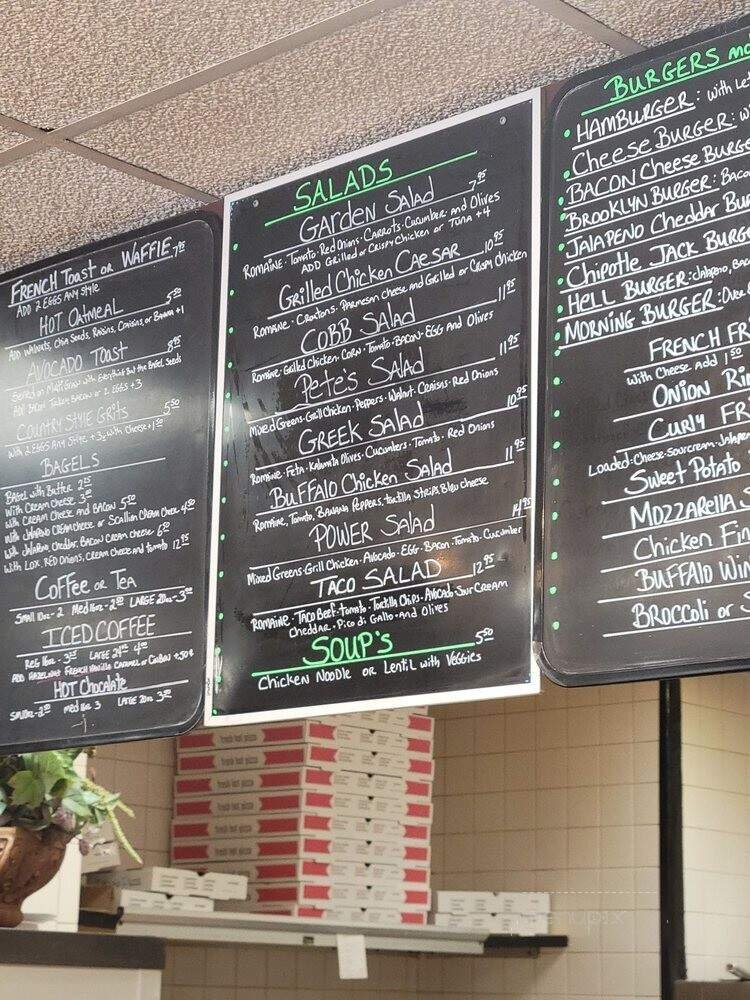 FRENCH Toast OR WAFFLE 7.95
ADD 2 EGGS ANY Style
HOT OATMEAL 5.50
ADD WALNUTS, Chia Seeds, Raisins, Craisins, or Banana +1
AVOCADO TOAST 8.95
COUNTRY STYLE GRITS 5.50
With 2 EGGS ANY Style +3, with Cheese +1.50
BAGELS
BAGEL with Butter 2.25
With CREAM Cheese
With CREAM Cheese AND BACON 5.50
With Jalapeno CREAM Cheese or Scallion CREAM Cheese
With Jalapeno, Cheddar, BACON CREAM Cheese
With LOX, RED ONIONS, CREAM Cheese and tomato 12.95
COFFEE OR TEA
SMALL 10oz - 2 MED 16oz - LARGE 20oz -
ICED COFFEE
REG 16oz - LARGE 24oz
ADD HAZELNUT FRENCH VANILLA CARAMEL or + 50¢
HOT Chocolate
MED 16oz 3 LARGE 20oz
SALADS
GARDEN SALAD 7.95
ROMAINE · Tomato · Red Onions · Carrots · Cucumber and Olives
ADD Grilled or CRISPY Chicken or TUNA +4
Grilled Chicken CAESAR 10.95
ROMAINE · Croutons · Parmesan cheese and Grilled or Crispy Chicken
COBB SALAD 11.95
Romaine · Grilled Chicken · Corn · Tomato · Bacon · EGG And Olives
Pete's SALAD 11.95
Mixed Greens · Grill Chicken · Peppers · Walnut · Craisins · Red Onions
GREEK SALAD 10.95
Romaine · Feta · Kalamata Olives · Cucumbers · Tomato · Red Onions
BUFFALO Chicken SALAD 11.95
Romaine, Tomato, Banana Peppers, tortilla Strips, Bleu cheese
POWER Salad 14.95
Mixed Greens · Grill Chicken · Avocado · EGG · Bacon · Tomato · Cucumber
TACO SALAD 12.95
ROMAINE · TACO Beef · Tomato · Tortilla Chips · Avocado · SOUR CREAM
Cheddar · Pico di Gallo · And Olives
SOUP'S 5.50
Chicken Noodle OR Lentil with VEGGIES
BURGERS
HAMBURGER: with
Cheese BURGER:
BACON Cheese
BROOKLYN BURGER:
JALAPENO Cheddar
Chipotle JACK
HELL BURGER: Jalapeno,
MORNING BURGER:
FRENCH
With Cheese Add 1.50
ONION
CURLY
Loaded: Cheese · Sourcream ·
Sweet Potato
MOZZARELLA
Chicken
BUFFALO
BROCCOLI or